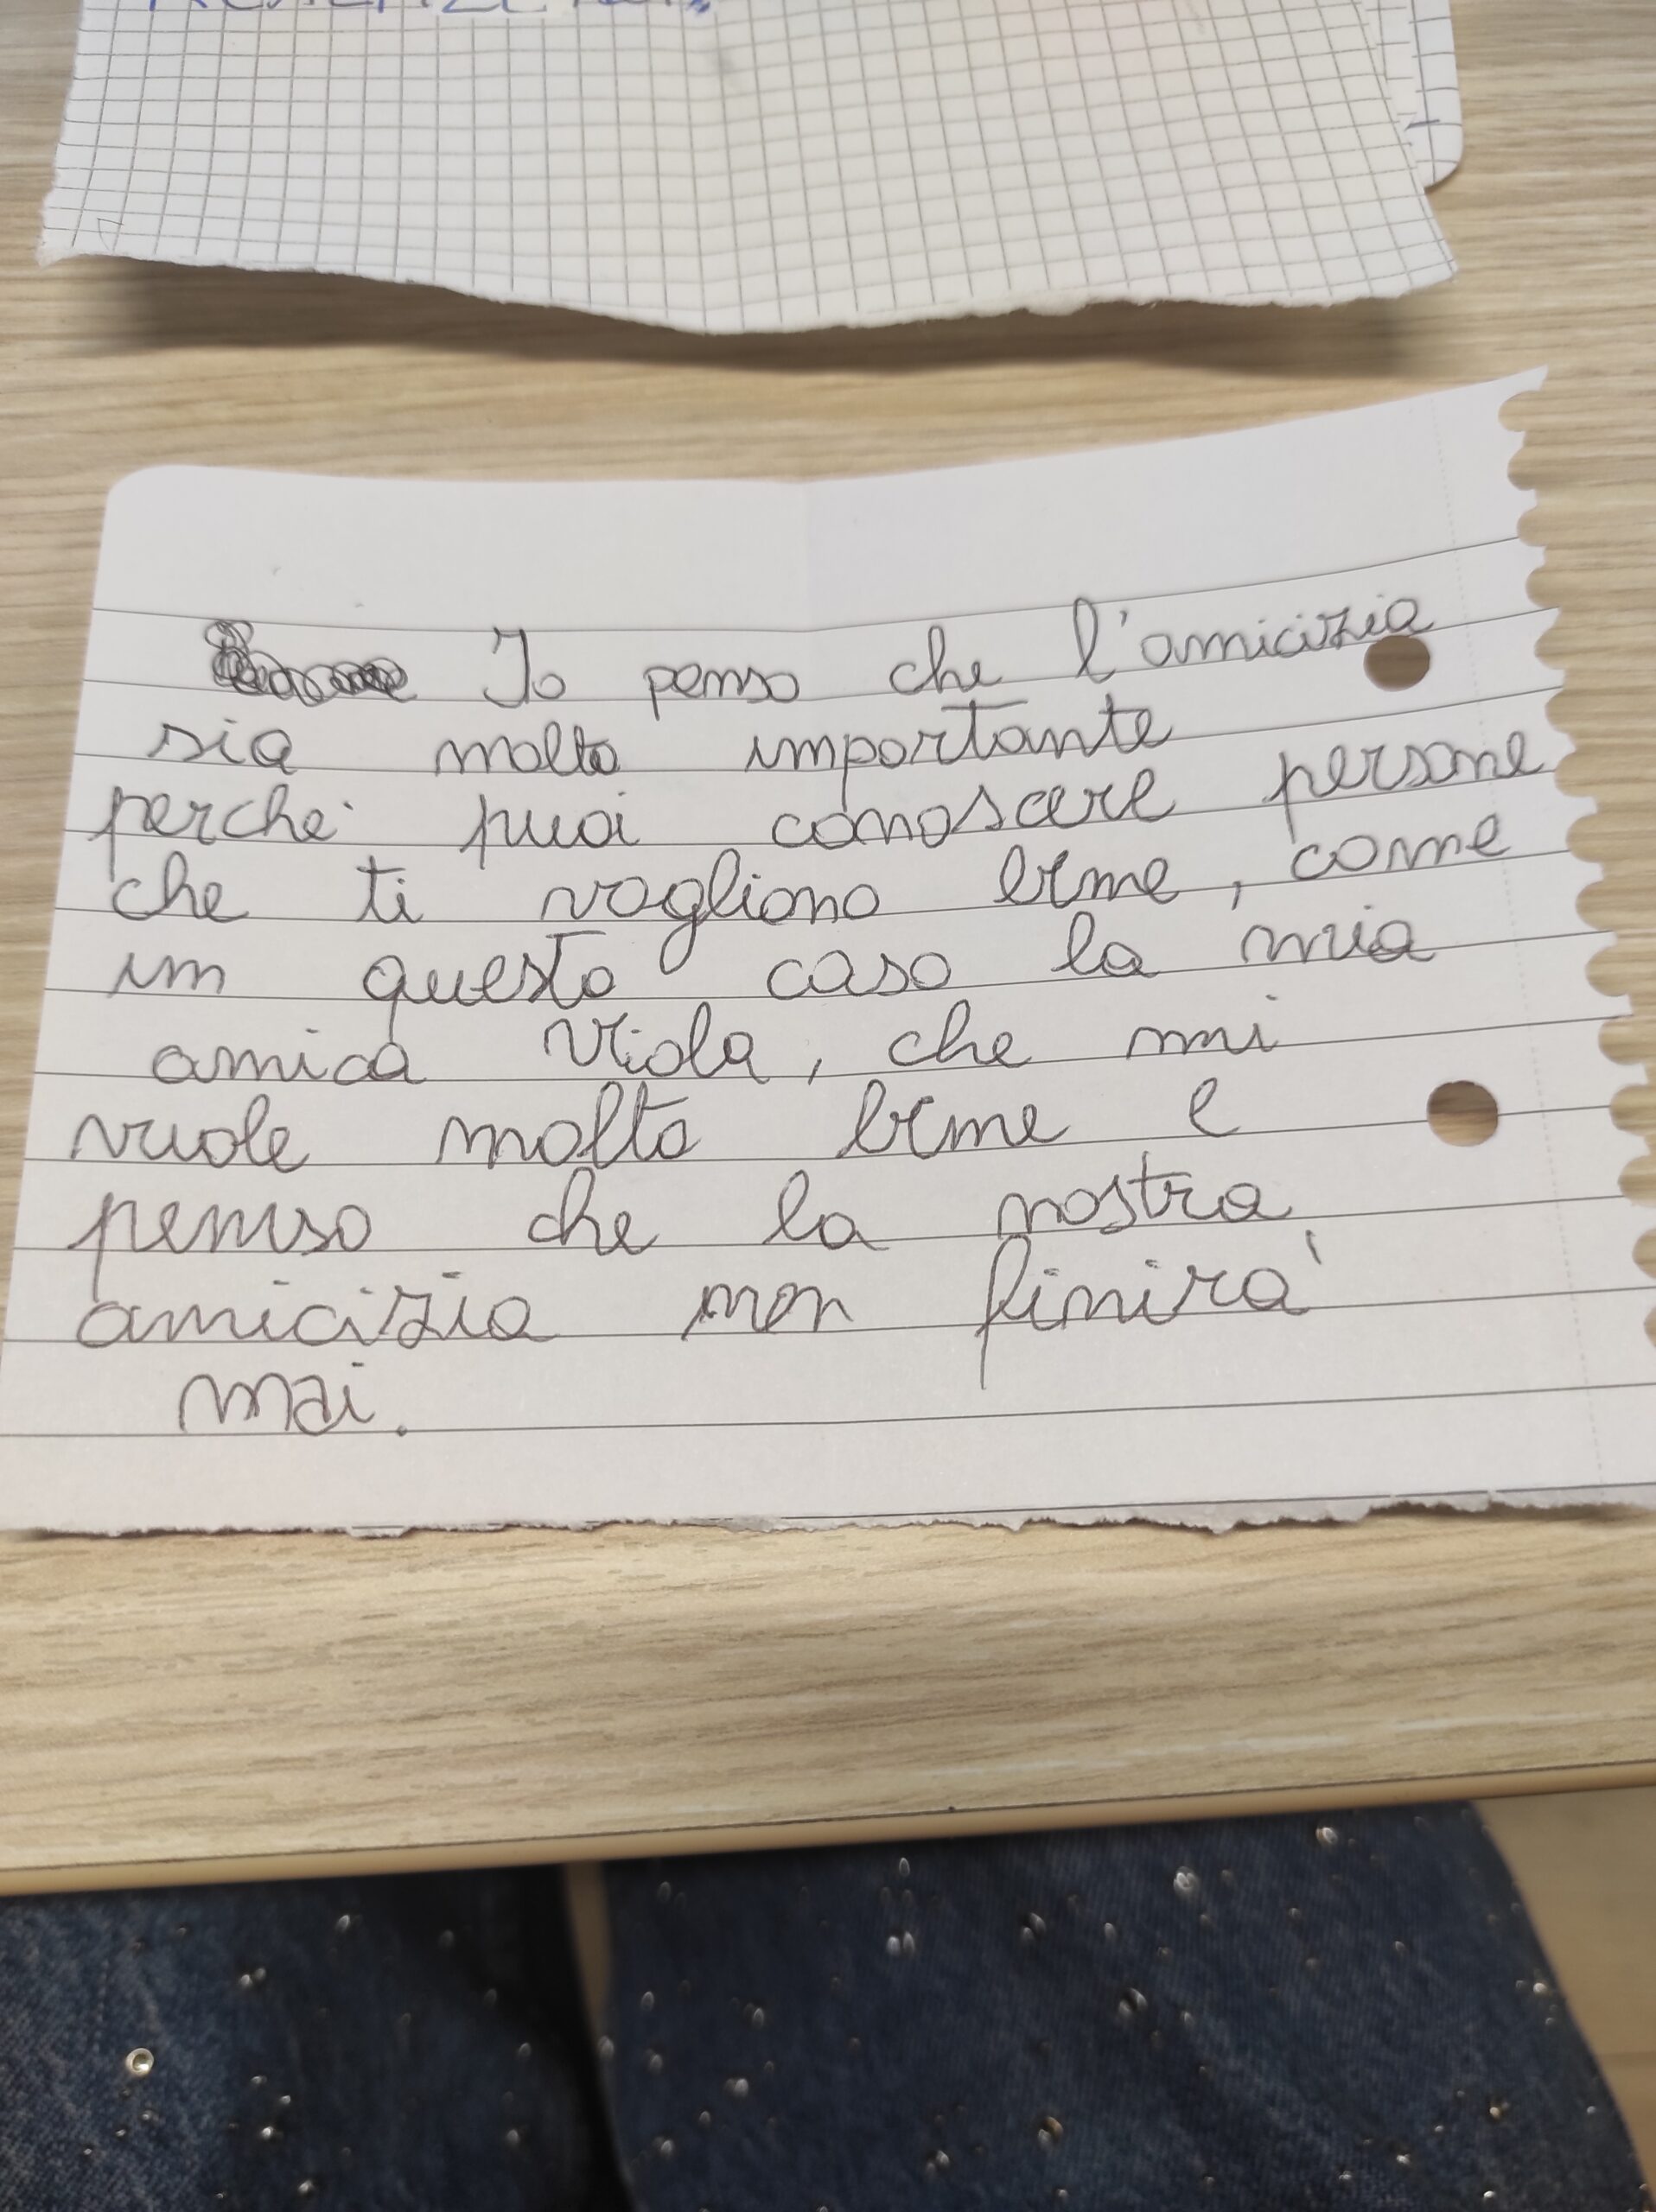 Io penso che l'amicizia
sia molto importante
perché puoi conoscere persone
che ti vogliono bene, come
in questo caso la mia
amica Viola, che mi
vuole molto bene e
penso che la nostra
amicizia non finirà
mai.